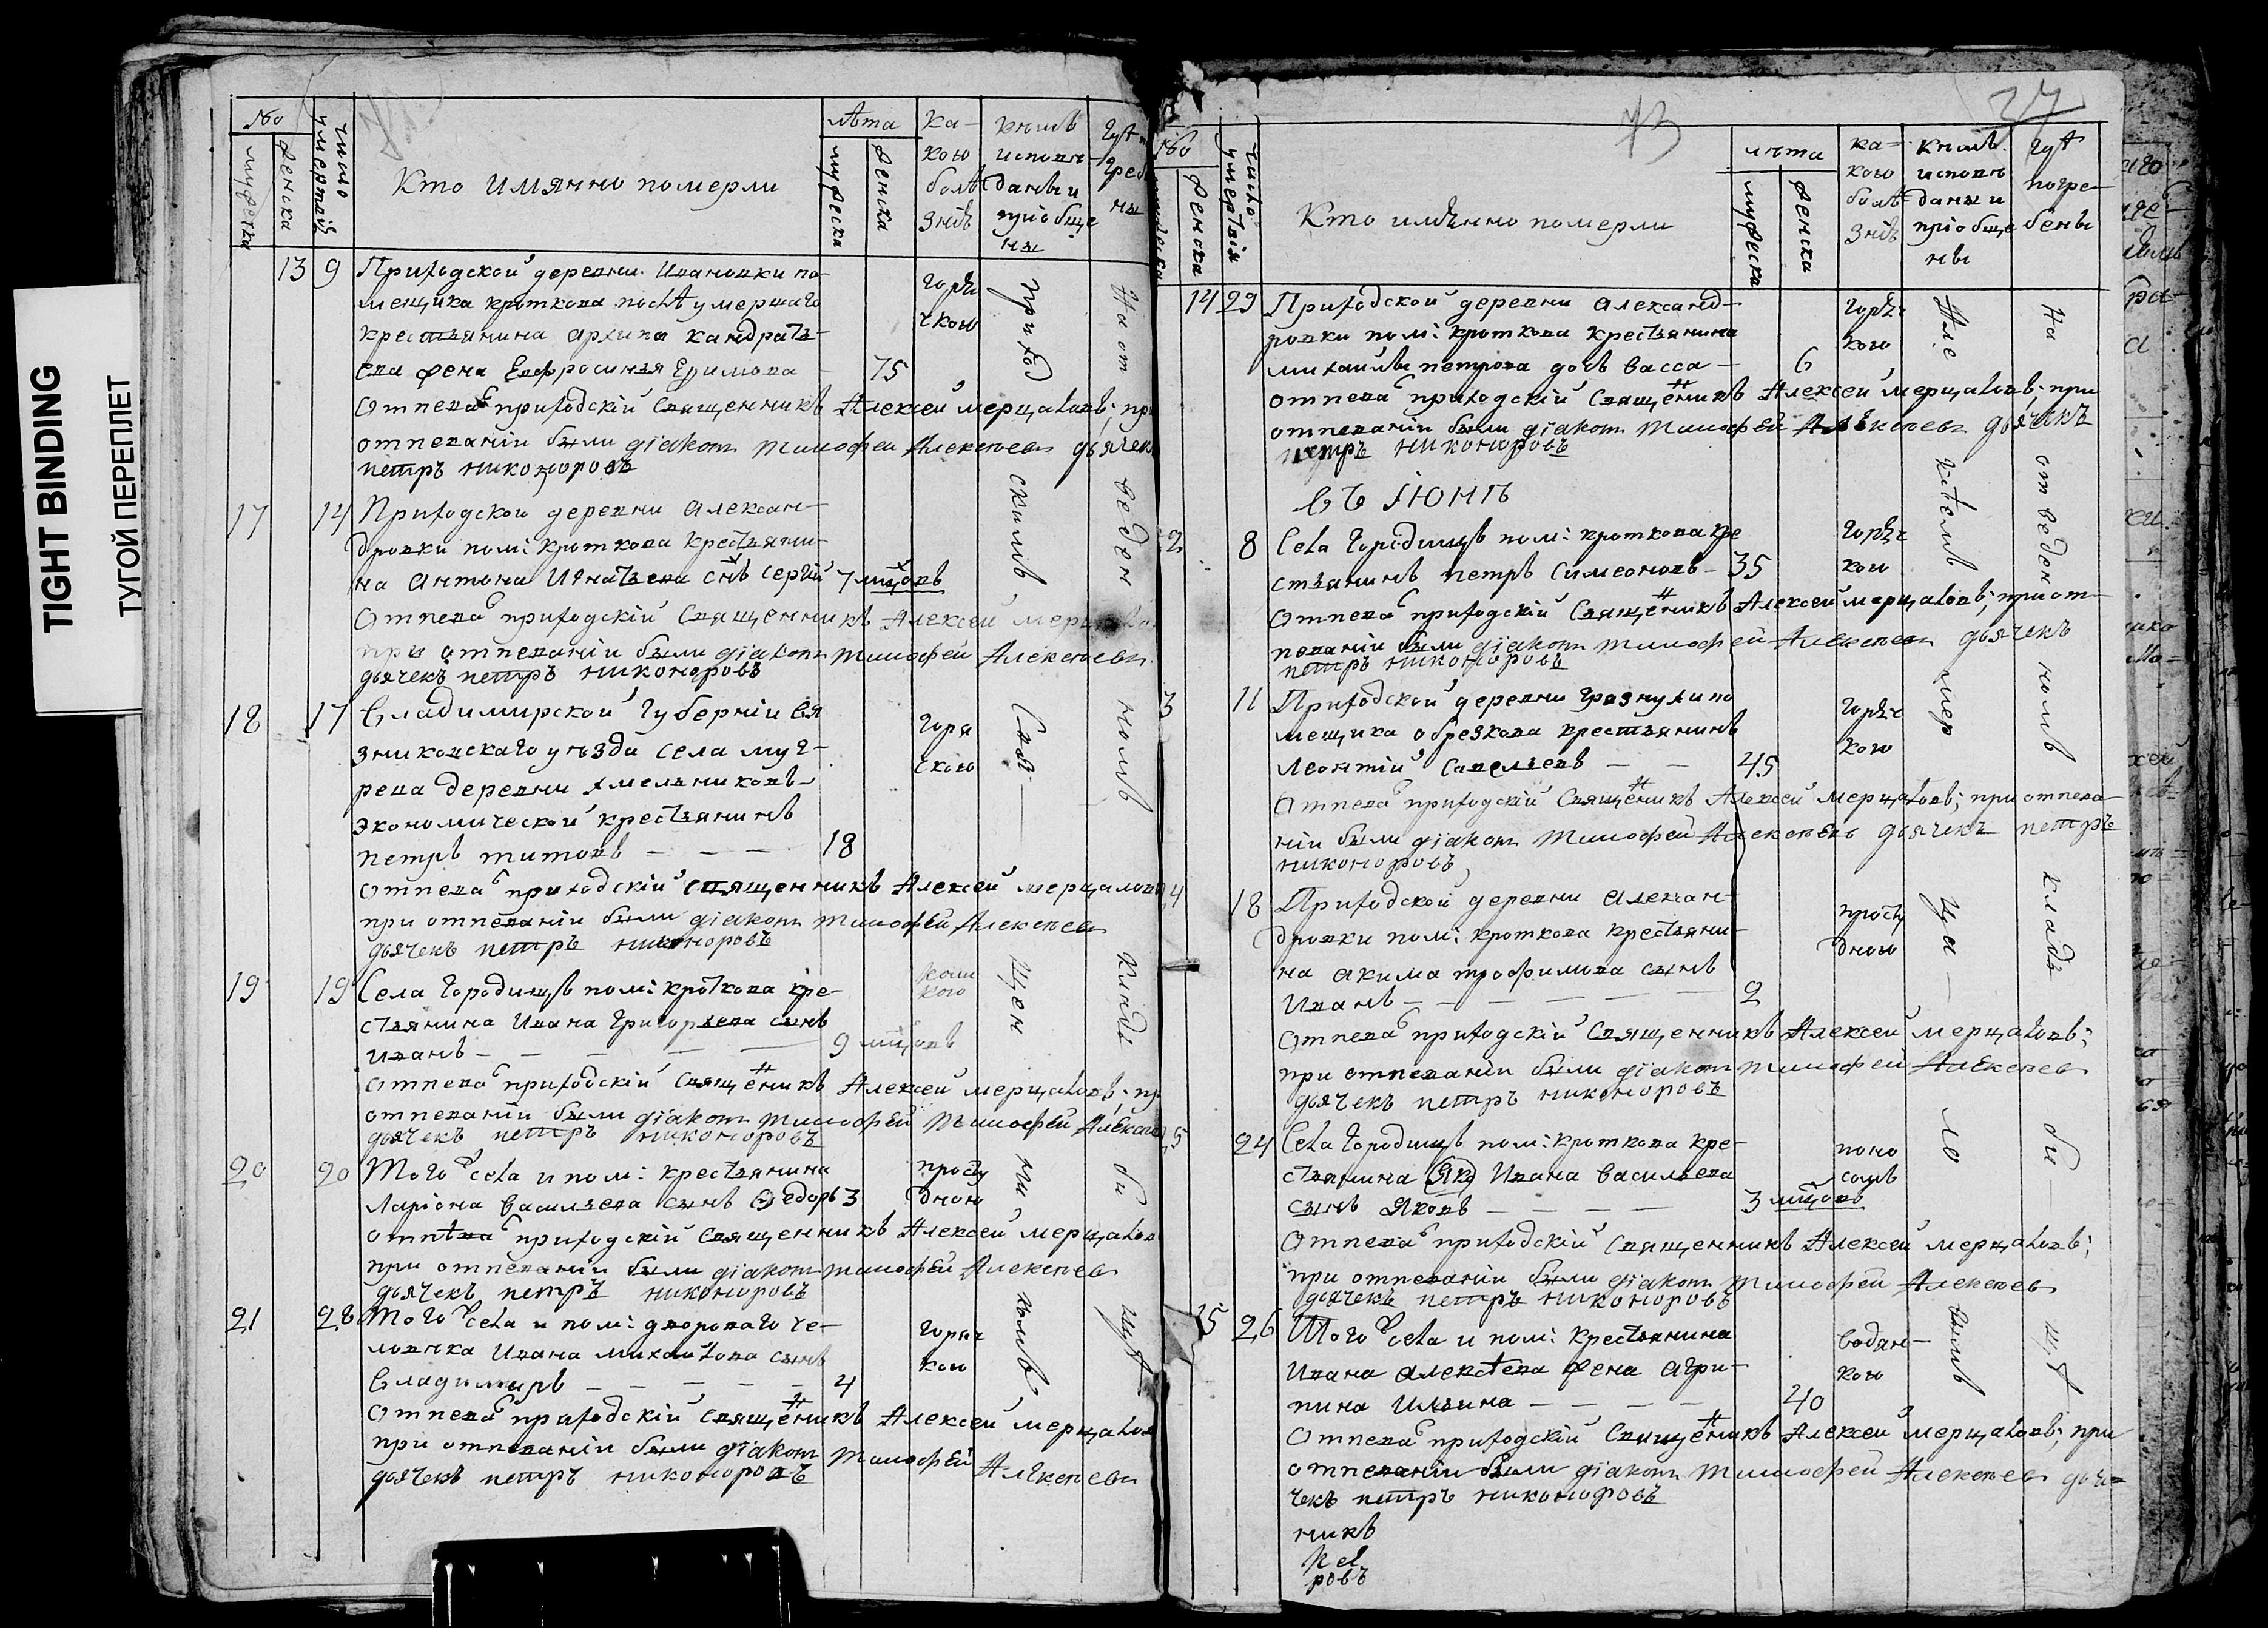 TIGHT BINDING
ТУГОЙ ПЕРЕПЛЕТ
№о
мужеска
женска
число умертвій
Кто имянно померли
лѣта
мужеска
женска
ка-
кою
болѣ
знію
кѣмъ
исповѣ
даны и
пріобще
ны
гдѣ
погре
ны
13 9 Приходской деревни Ивановки по-
мещика кроткова послѣ умершаго
крестьянина архипа кандратье-
ва жена Евфросинья Ефимова 75
горя
чкою
Отпевалъ приходскій Священникъ Алексей мерцаловъ; при
отпеваніи были діаконъ тимофей Алексѣевъ дьячекъ
петръ никоноровъ
17 14 Приходской деревни алексан-
дровки пом: кроткова крестьяни-
на антона Игнатьева снъ сергій 7 мцовъ
Отпевалъ приходскій Священникъ Алексей мерцаловъ
при отпеваніи были діаконъ тимофей Алексѣевъ
дьячекъ петръ никоноровъ
18 17 Владимирской губерніи Вя
зниковскаго уѣзда села муг-
реева деревни хмельниковъ
экономической крестьянинъ
петръ титовъ — — — 18
горя
чкою
отпевалъ приходскій священникъ Алексей мерцаловъ
при отпеваніи были діаконъ тимофей Алексѣевъ
дьячекъ петръ никоноровъ
19 19 Села городищъ пом: кроткова кре-
стьянина Ивана григорьева сынъ
иванъ — — — — — 9 мцовъ
каш
кою
отпевалъ приходскій священникъ Алексей мерцаловъ; при
отпеваніи были діаконъ тимофей тимофей Алексѣевъ
дьячекъ петръ никоноровъ
20 20 Того села и пом: крестьянина
Ларіона васильева сынъ Ѳедоръ 3
просту
дною
отпѣвалъ приходскій священникъ Алексей мерцаловъ
при отпеваніи были діаконъ тимофей Алексѣевъ
дьячекъ петръ никоноровъ
21 28 Того села и пом: двороваго че-
ловѣка Ивана михайлова сынъ
Владимиръ — — — — — 4
горяч
кою
отпевалъ приходскій священникъ Алексей мерцаловъ
при отпеваніи были діаконъ тимофей Алексѣевъ
дьячекъ петръ никоноровъ
приход скимъ Свя- щен ни, комъ,
На от веден номъ кладъ би щѣ
73
37
№о
мужеска
женска
число умертвія
Кто имянно померли
лѣта
мужеска
женска
ка-
кою
болѣ
знію
кѣмъ
исповѣ
даны и
пріобще
ны
гдѣ
погре-
бены
14 29 Приходской деревни александ-
ровки пом: кроткова крестьянина
михаилы петрова дочь васса — 6
горяч
кою
отпевалъ приходскій Священникъ Алексей мерцаловъ; при
отпеваніи были діаконъ тимофей Алексѣевъ дьячекъ
петръ никоноровъ
въ Іюнѣ
2 8 Села городищъ пом: кроткова кре
стьянинъ петръ симеоновъ — 35
горяч
кою
отпевалъ приходскій Священникъ Алексей мерцаловъ; при от-
певаніи были діаконъ тимофей Алексѣевъ дьячекъ
петръ никоноровъ
3 11 Приходской деревни грязнухи по
мещика обрезкова крестьянинъ
леонтій савельевъ — — 45
горяч
кою
отпевалъ приходскій Священникъ Алексей мерцаловъ; при отпева-
ніи были діаконъ тимофей Алексѣевъ дьячекъ петръ
никоноровъ
4 18 Приходской деревни алексан-
дровки пом: кроткова крестьяни-
на акима трофимова сынъ
Иванъ — — — — — 2
просту
дною
отпевалъ приходскій Священникъ Алексей мерцаловъ;
при отпеваніи были діаконъ тимофей Алексѣевъ
дьячекъ петръ никоноровъ
5 24 Села городищъ пом: кроткова кре-
стьянина Як Ивана васильева
сынъ яковъ — — — — 3 мцовъ
поно
сомъ
отпевалъ приходскій священникъ Алексей мерцаловъ;
при отпеваніи были діаконъ тимофей Алексѣевъ
дьячекъ петръ никоноровъ
15 26 Того села и пом: крестьянина
Ивана алексѣева жена агри-
пина ильина — — — — 40
водян-
кою
отпевалъ приходскій Священникъ Алексей мерцаловъ; при
отпеваніи были діаконъ тимофей Алексѣевъ дья-
чекъ петръ никоноровъ
никъ
ровъ
Але ксѣемъ мер ца- ло вымъ
На от веден номъ кладъ би щѣ